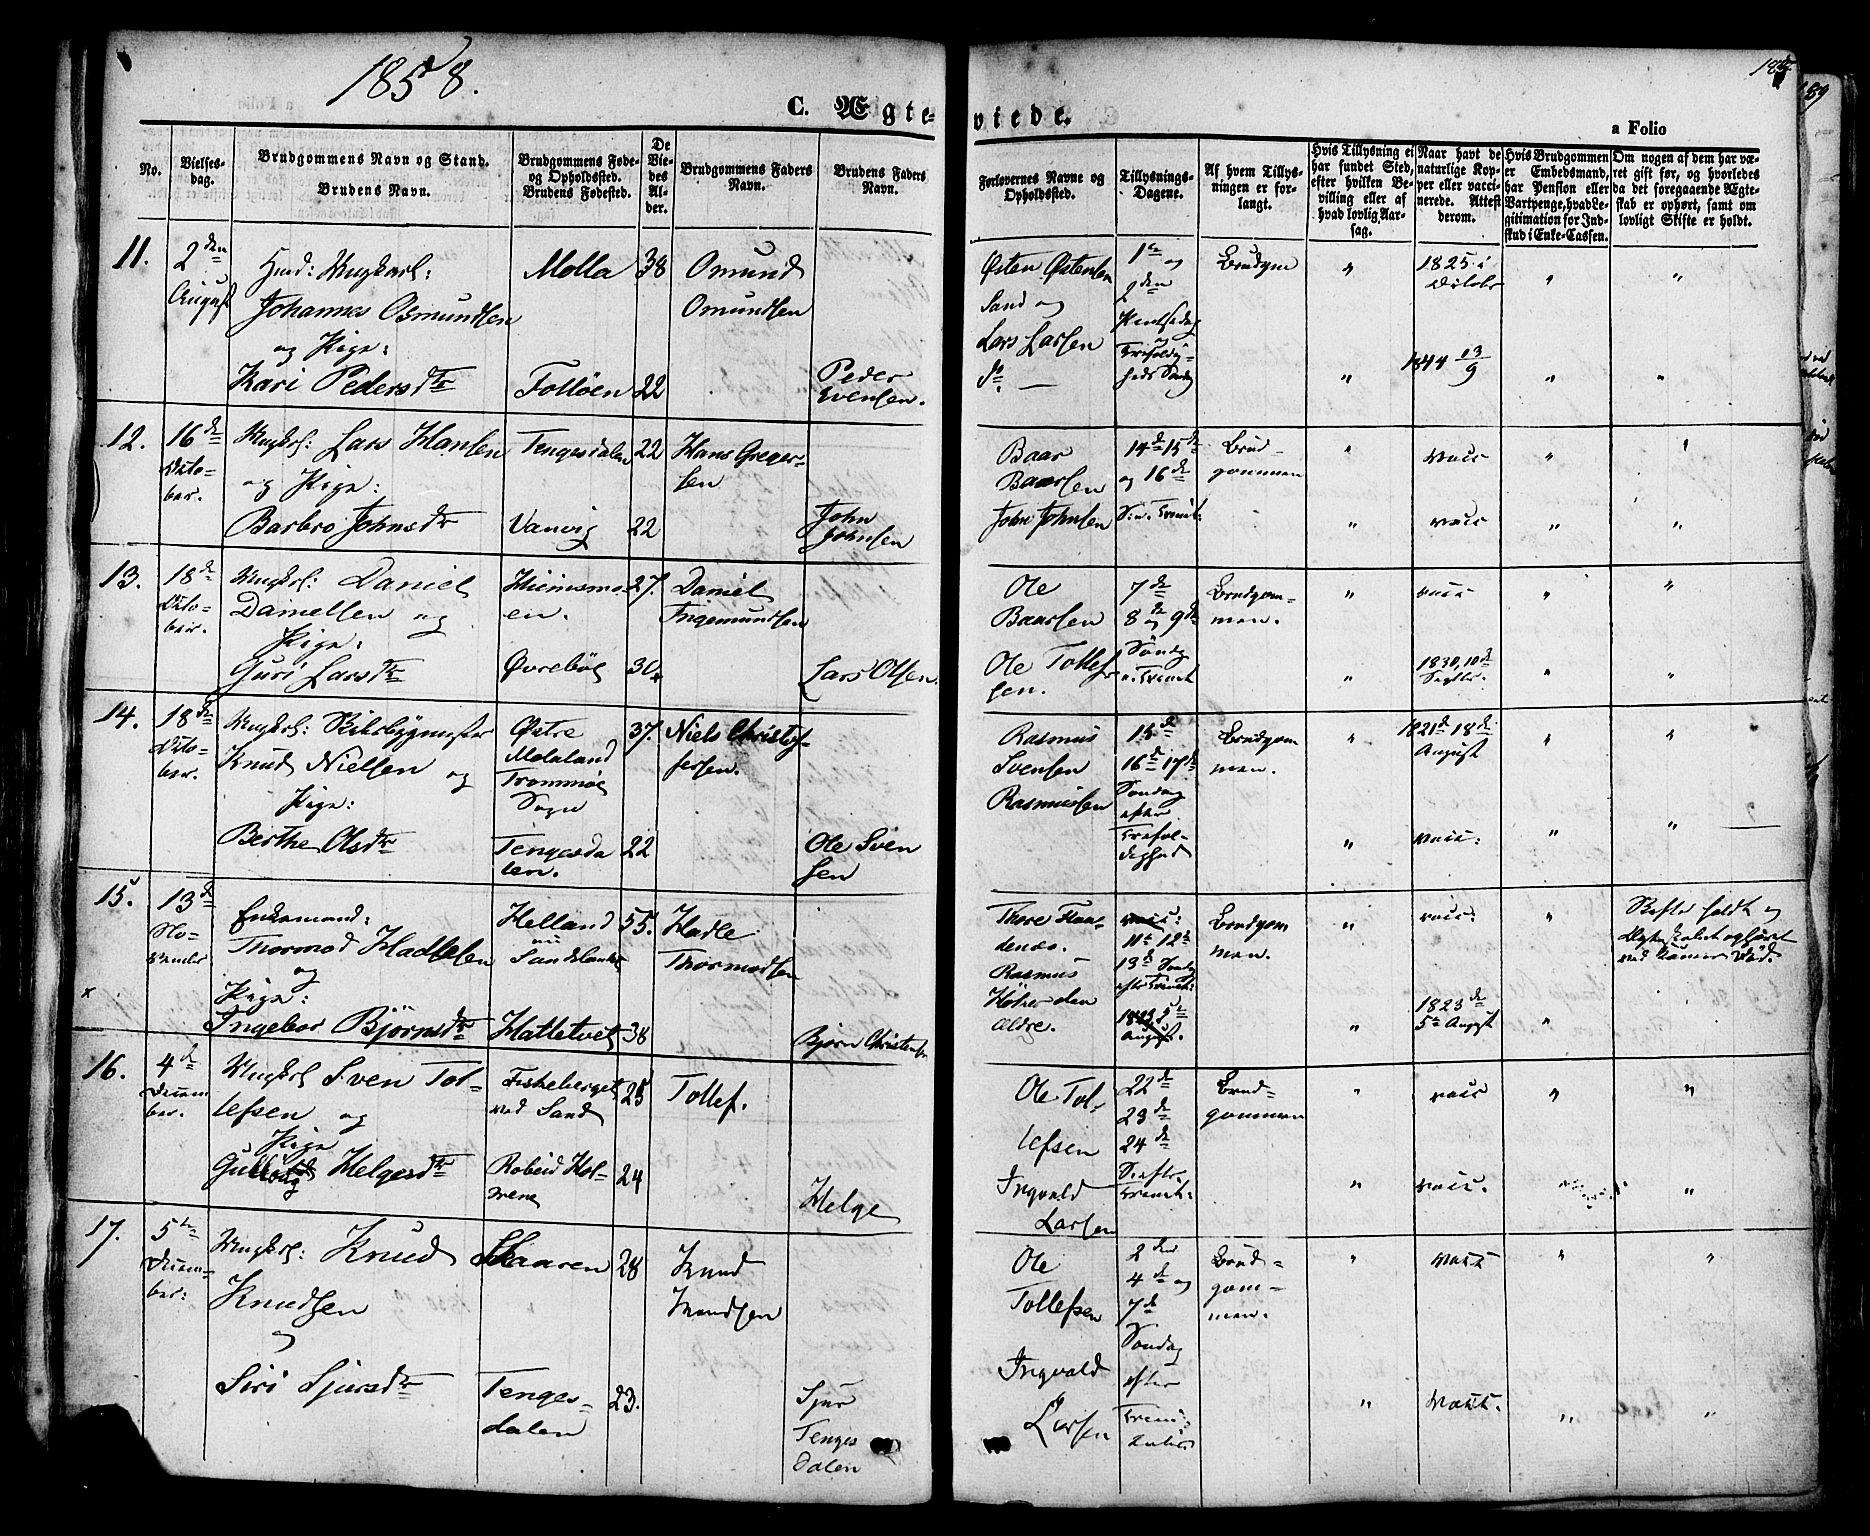 1858.
188.
189
C. Ægte-
viede.
a Folio
No.
Vielses-
dag.
Brudgommens Navn og Stand.
Brudens Navn.
Brudgommens Føde-
og Opholdssted.
Brudens Fødested.
De
Vie-
des
Al-
der.
Brudgommens Faders
Navn.
Brudens Faders
Navn.
Forlovernes Navne og
Opholdssted.
Tillysnings-
Dagene.
Af hvem Tillys-
ningen er for-
langt.
Hvis Tillysning ei
har fundet Sted,
efter hvilken Be-
villing eller af
hvad lovlig Aar-
sag.
Naar havt de
naturlige Kop-
per eller vacci-
nerede. Attest
derom.
Hvis Brudgommen
er Embedsmand,
har Pension eller
Vartpenge, hvad Le-
gitimation for Ind-
skud i Enke-Cassen.
Om nogen af dem har væ-
ret gift før, og hvorledes
da det foregaaende Ægte-
skab er ophørt, samt om
lovligt Skifte er holdt.
11.
2den
August
Ungkarl:
Johannes Osmundsen
og Pige:
Kari Pedersdtr
Molla
Folløen
38
22
Omund
Omundsen
Peder
Evensen.
Østen Østensen
Sand og
Lars Larsen
do. —
1ste og
2den
Pintsedag
og
Trefoldig-
heds Søndag
Brudgom
" 1825 i
Octobr " "
" 1844 13/9 " "
12.
16de
Octo-
ber.
Ungkrl: Lars Hansen
og Pige:
Barbro Johnsdtr
Tengesdalen
Vanvig
22
22
Hans Greger-
sen
John
Johnsen
Baar
Baarsen
John Johnsen
14de 15de
og 16de
S. e. Trenit:
Brud-
gommen
" vacc " "
" vacc " "
13.
18de
Octo-
ber.
Ungkrl: Daniel
Danielsen og
Pige:
Guri Larsdtr
Hiimsmo-
en.
Øvrebøe
27.
30.
Daniel
Ingemundsen
Lars Olsen.
Ole
Baarsen
Ole Tollef-
sen.
7de
8de og 9de
Søndg
e. Trenit
Brudgom-
men.
" vacc " "
" 1830, 10de
Septbr. " "
14.
18de
Octo-
ber.
Ungkrl: Skibsbygmester
Knud Nielsen og
Pige:
Berthe Olsdtr
Østre
Molaland
Trommøe
Sogn
Tengesda
len.
37.
22
Niels Christof-
fersen.
Ole Sven
sen
Rasmus
Svensen
Rasmussen
15de
16de 17de
Søndag
efter
Trefol-
dighed
Brudgom
men.
" 1821de 18de
August " "
" vacc: " "
15.
13de
No-
vember
Enkemand:
Thormod Hadlesen
og
Pige:
Ingebor Bjørnsdtr
Helland
i Sandslandet
Hattetvet
55.
38
Hadle
Thormodsen
Bjørn Christensen
Thore Flan-
denæs.
Rasmus
Høiner den
ældre.
vacc:
11te 12te
13de Søndg
efter Trenit:
1823 5te
August.
Brudgom
men.
" vacc: "
Skifte holdt og
Ægteskabet ophørt
ved Konens Død.
" 1823de
5te August "
x
16.
4de
Decem
ber.
Ungkrl Sven Tol-
lefsen og
Pige
Helgesdtr
Fiskeberget
ved Sand
24
Tollef.
Helge
Ole Tol-
lefsen
Ingvald
Larsen
22de
23de
24de
S. efter
Trenit:
Brud-
gommen
" vacc " "
" vacc. " "
17.
5te
Decem-
ber:
Ungkrl: Knud
Knudsen
og
Siri Sjursdtr
Skaaren
Tenges-
dalen
28
23.
Knud
Knudsen
Sjur
Tenges
dalen
Ole
Tollefsen
Ingvald
Larsen
2den
4de og
7de
Søndag
efter
Treni-
tatis
Brud-
gom-
men.
" vacc " "
" vacc. " "